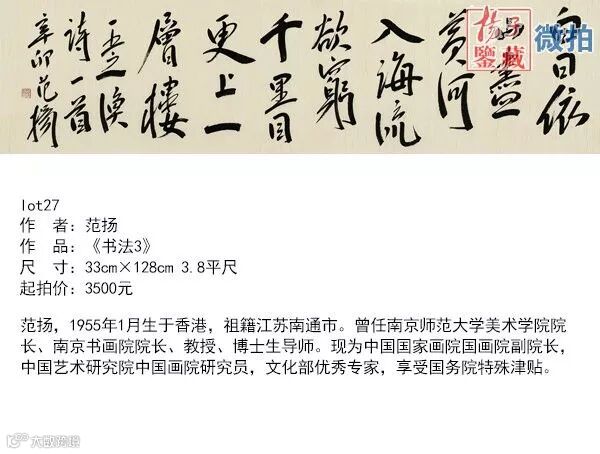 白日依
山盡
黄河
入海流
欲窮
千里目
更上一
層樓
王之渙
詩一首
辛卯 范揚
鑒藏
微拍
lot27
作　者：范扬
作　品：《书法3》
尺　寸：33cm×128cm 3.8平尺
起拍价：3500元
范扬，1955年1月生于香港，祖籍江苏南通市。曾任南京师范大学美术学院院
长、南京书画院院长、教授、博士生导师。现为中国国家画院国画院副院长，
中国艺术研究院中国画院研究员，文化部优秀专家，享受国务院特殊津贴。